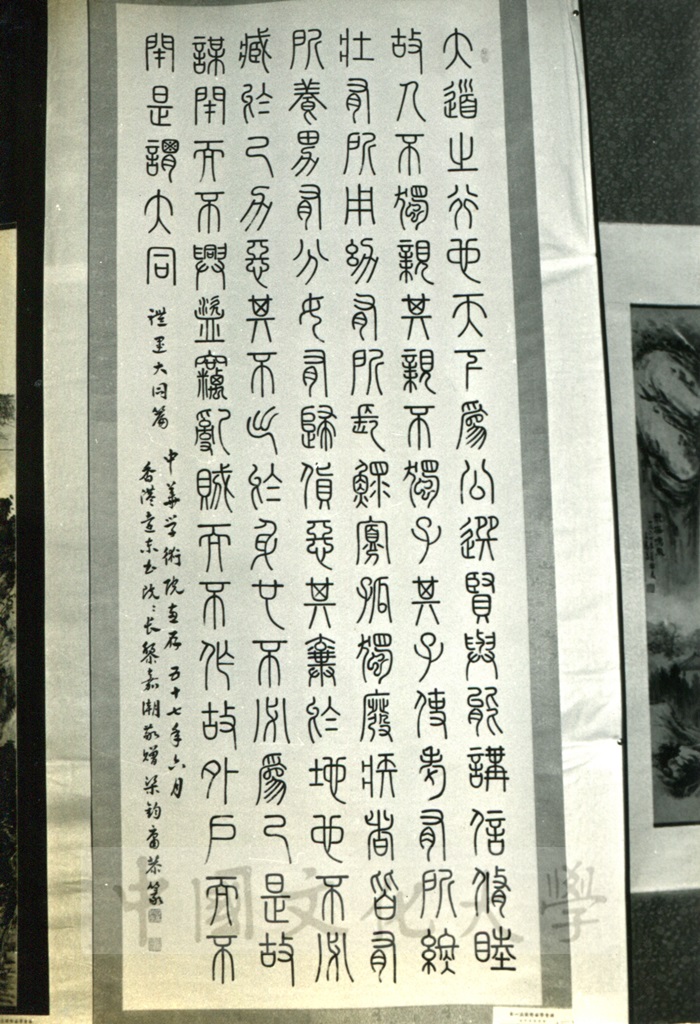 大道之行也天下爲公選賢與能講信脩睦
故人不獨親其親不獨子其子使老有所終
壯有所用幼有所長鰥寡孤獨廢疾者皆有
所養男有分女有歸貨惡其棄於地也不必
藏於己力惡其不出於身也不必爲己是故
謀閉而不興盜竊亂賊而不作故外戶而不
閉是謂大同 禮運大同篇
中華學術院惠存 五十七年六月
香港遠東书院〻長黎嘉潮敬贈 梁鈞庸恭篆
中國文化大學